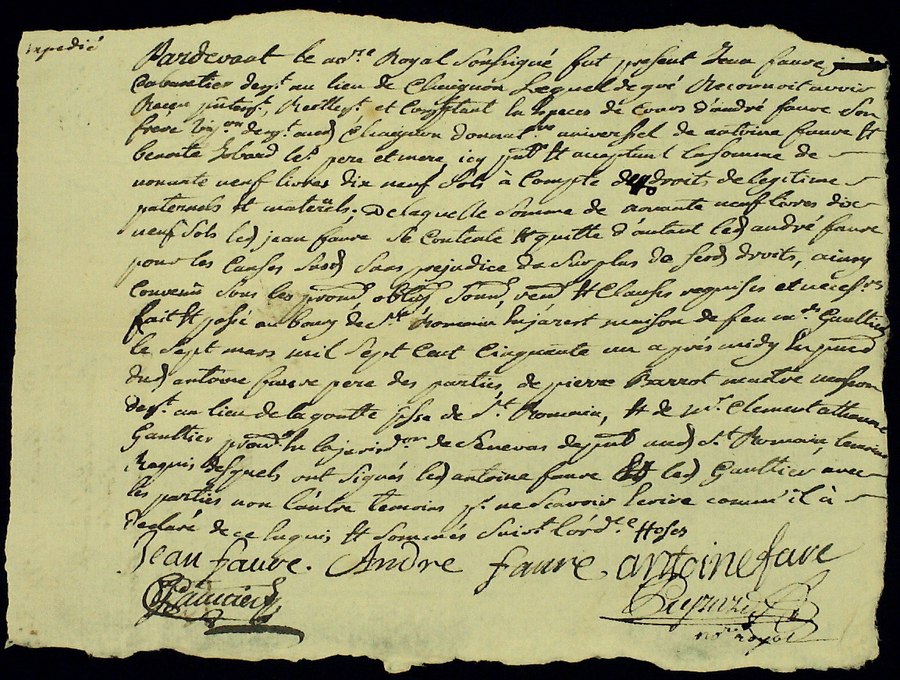 expedié
Pardevant le no.re Royal Soussigné fut present Jean faure
Cabaretier dem.t au lieu de Chaignon Lequel de gré Reconnoit avoir
Reçeu et Comptant en especes de Cours d'andré faure son
frere dem.t aud Chaignon donnat.re universel de antoine faure et
benoite leurs pere et mere icy pnt et acceptant la somme de
nonante neuf livres dix neuf sols à Compte de droits de legitime
paternels et maternels, De laquelle somme de nonante neuf livres dix
neuf sols led jean faure se Contente et quitte d'autant led andré faure
pour les Causes susd sans prejudice du surplus de sesd droits, ainsy
Convenu sous les prom oblig soum renon et Clauses requises et necess.res
fait et passé au bourg de S.t Romain En jarest maison de feu m.re Gaultier
le sept mars mil sept Cent Cinquante un après midy En pnce
dud antoine faure pere des parties, de pierre Barrot maitre masson
dem.t au lieu de la goutte psse de S.t Romain, et de m.r Clement
Gaultier en la jurid.on de Senevas dem.t aud S.t Romain, temoins
Requis desquels ont signés led antoine faure et led Gaultier avec
les parties non l'autre temoins p.r ne scavoir Ecrire comm'il à
declaré de ce enquis et sommés suiv.t l'ord.ce
Jean faure. Andre faure. antoine faure
Gaultier
no.re royal